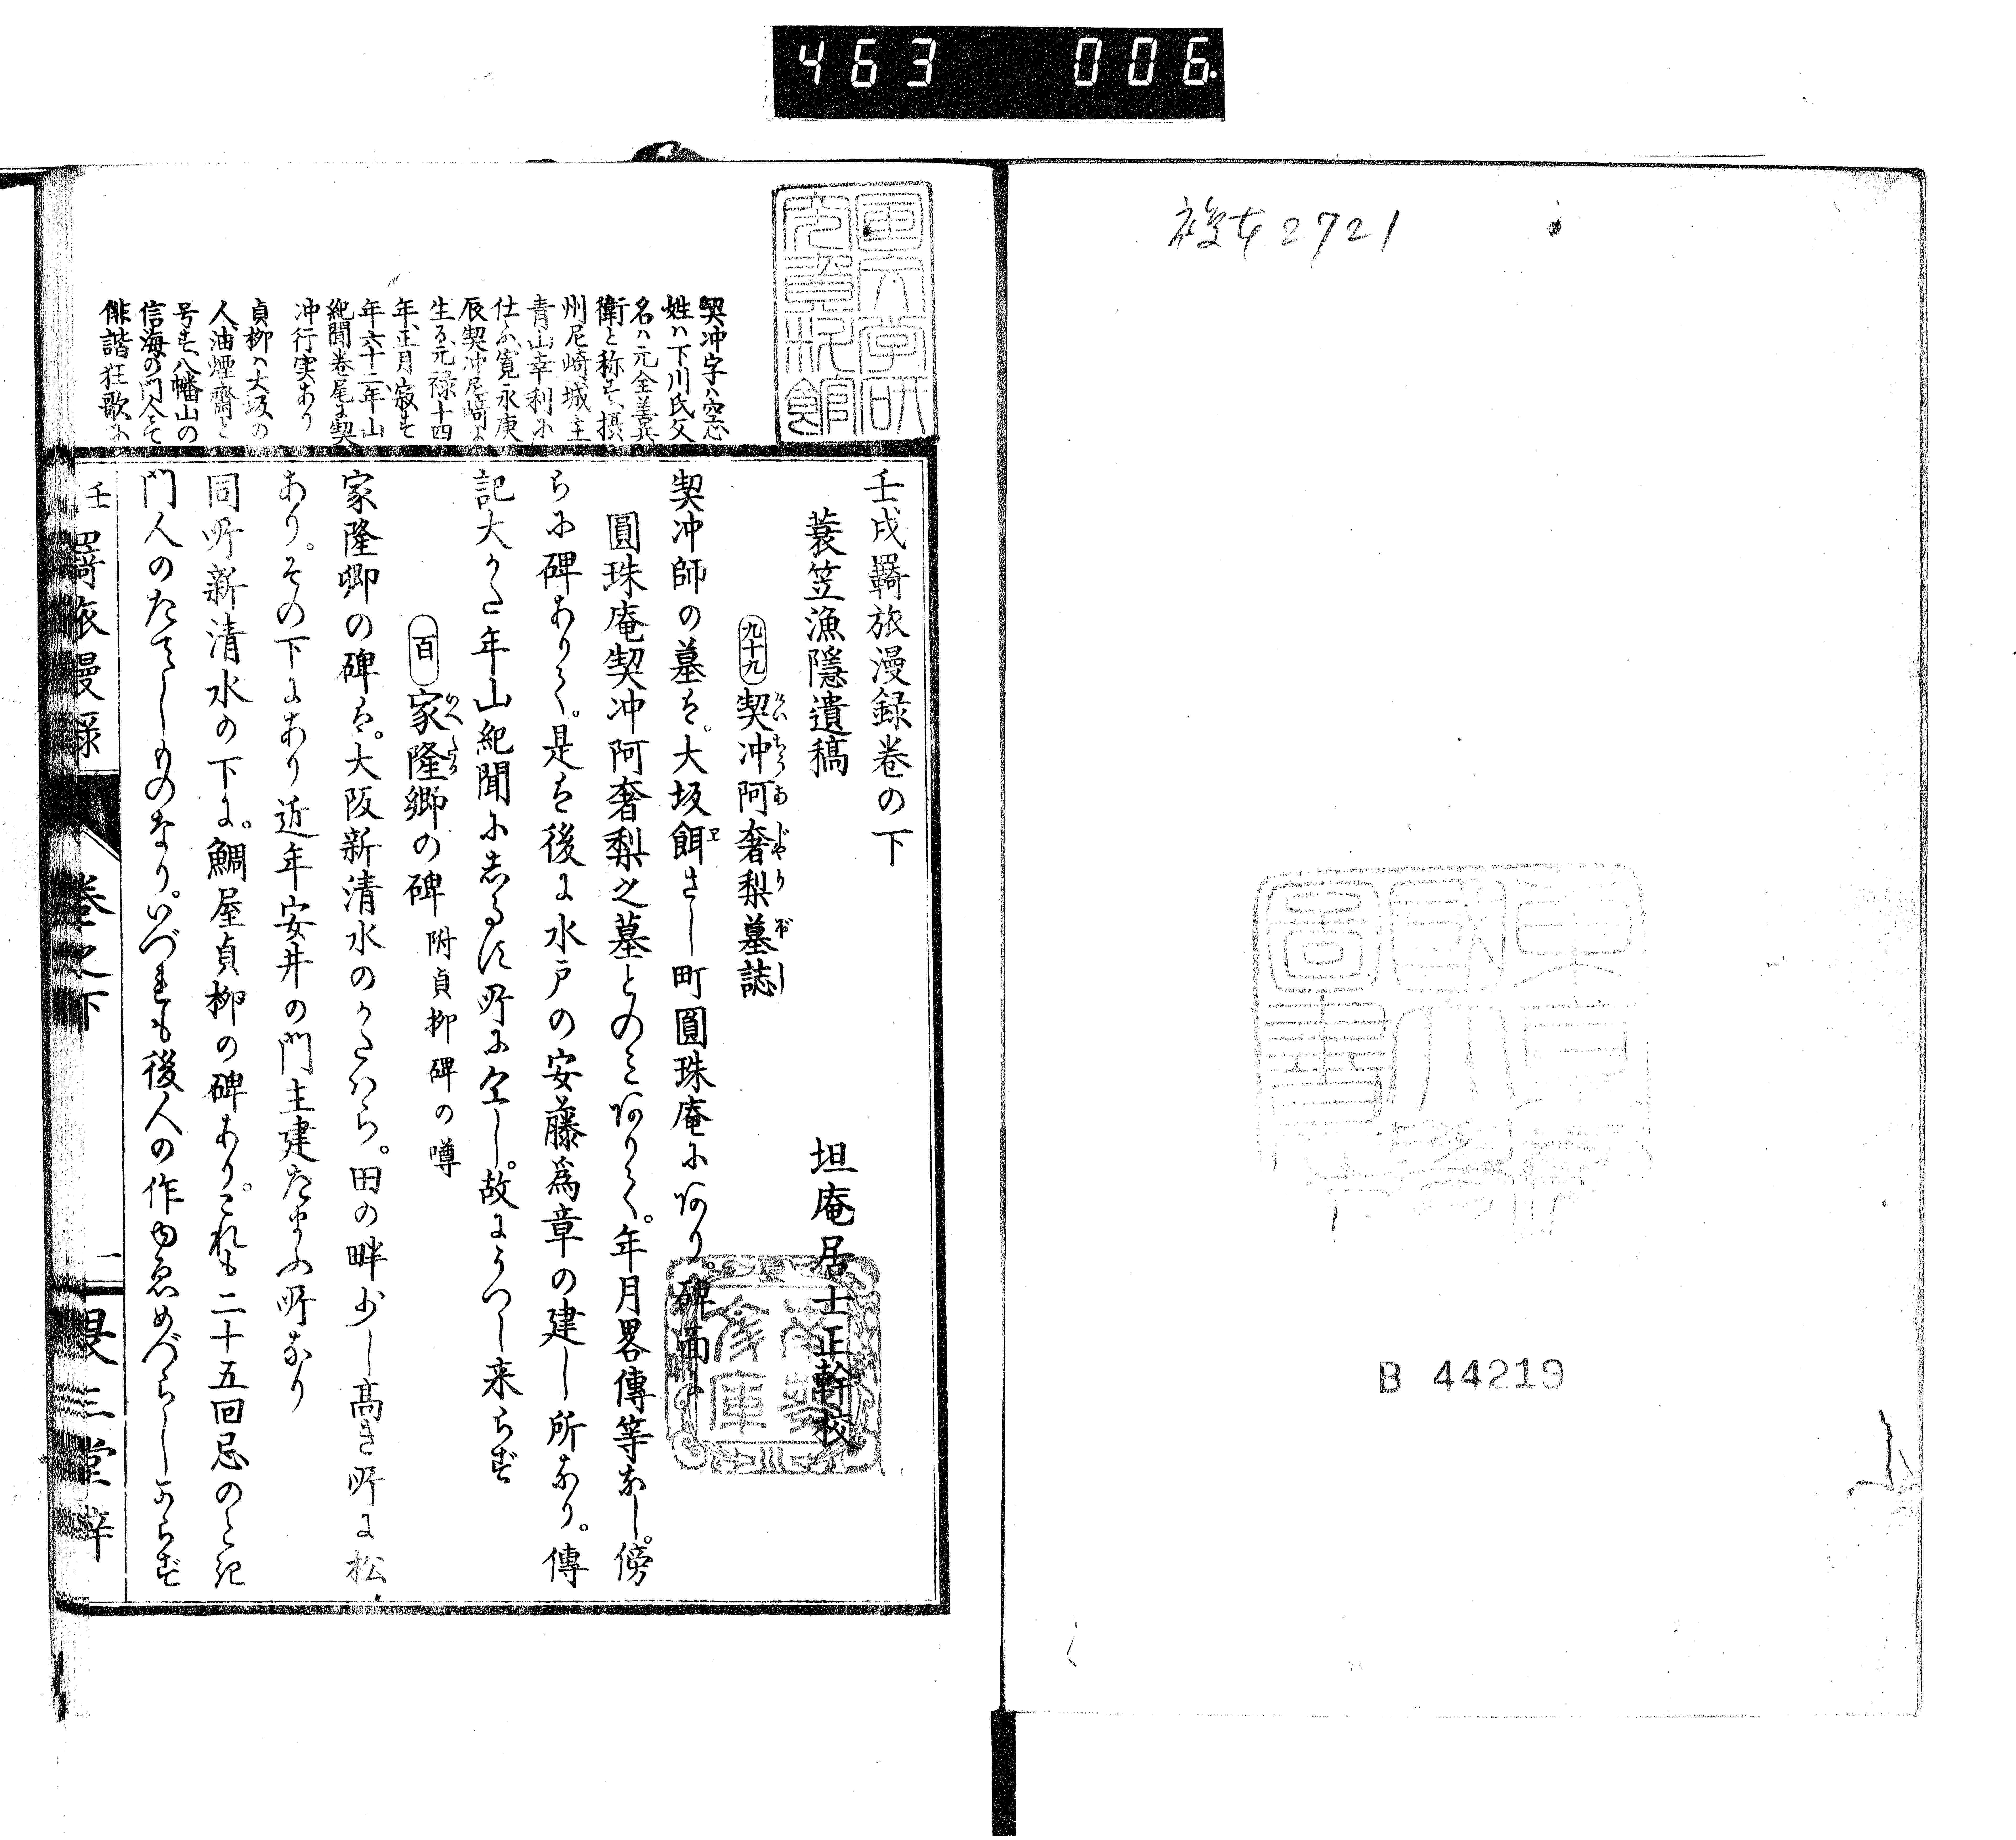 463 006
2721
B 44219
国文学研
究資料館
壬戌羇旅漫録巻の下
蓑笠漁隠遺稿
坦庵居士正幹校
九十九 契冲阿奢梨墓誌
契冲師の墓は。大坂餌さし町圓珠庵にあり。碑面に
圓珠庵契冲阿奢梨之墓とのみありて。年月畧傳等なし。傍
らに碑ありて。是は後に水戸の安藤爲章の建し所なり。傳
記大かた年山紀聞にしるす所に仝し。故にうつし来らず
百 家隆卿の碑 附貞柳碑の噂
家隆卿の碑は。大阪新清水のかたはら。田の畔少し高き所に松
あり。その下にあり近年安井の門主建たまふ所なり
同所新清水の下に。鯛屋貞柳の碑あり。これも二十五回忌のとき
門人のたてしものなり。いづれも後人の作ゆゑめづらしからず
契冲字ハ空心
姓ハ下川氏父
名ハ元全善兵
衛と称す、摂
州尼崎城主
青山幸利に
仕ふ寛永庚
辰契冲尼崎に
生る元禄十四
年正月寂す
年六十二年山
紀聞巻尾に契
冲行実あり
貞柳ハ大坂の
人油煙齋と
号す八幡山の
信海の門人にて
俳諧狂歌に
壬 羇旅漫録 巻之下 一